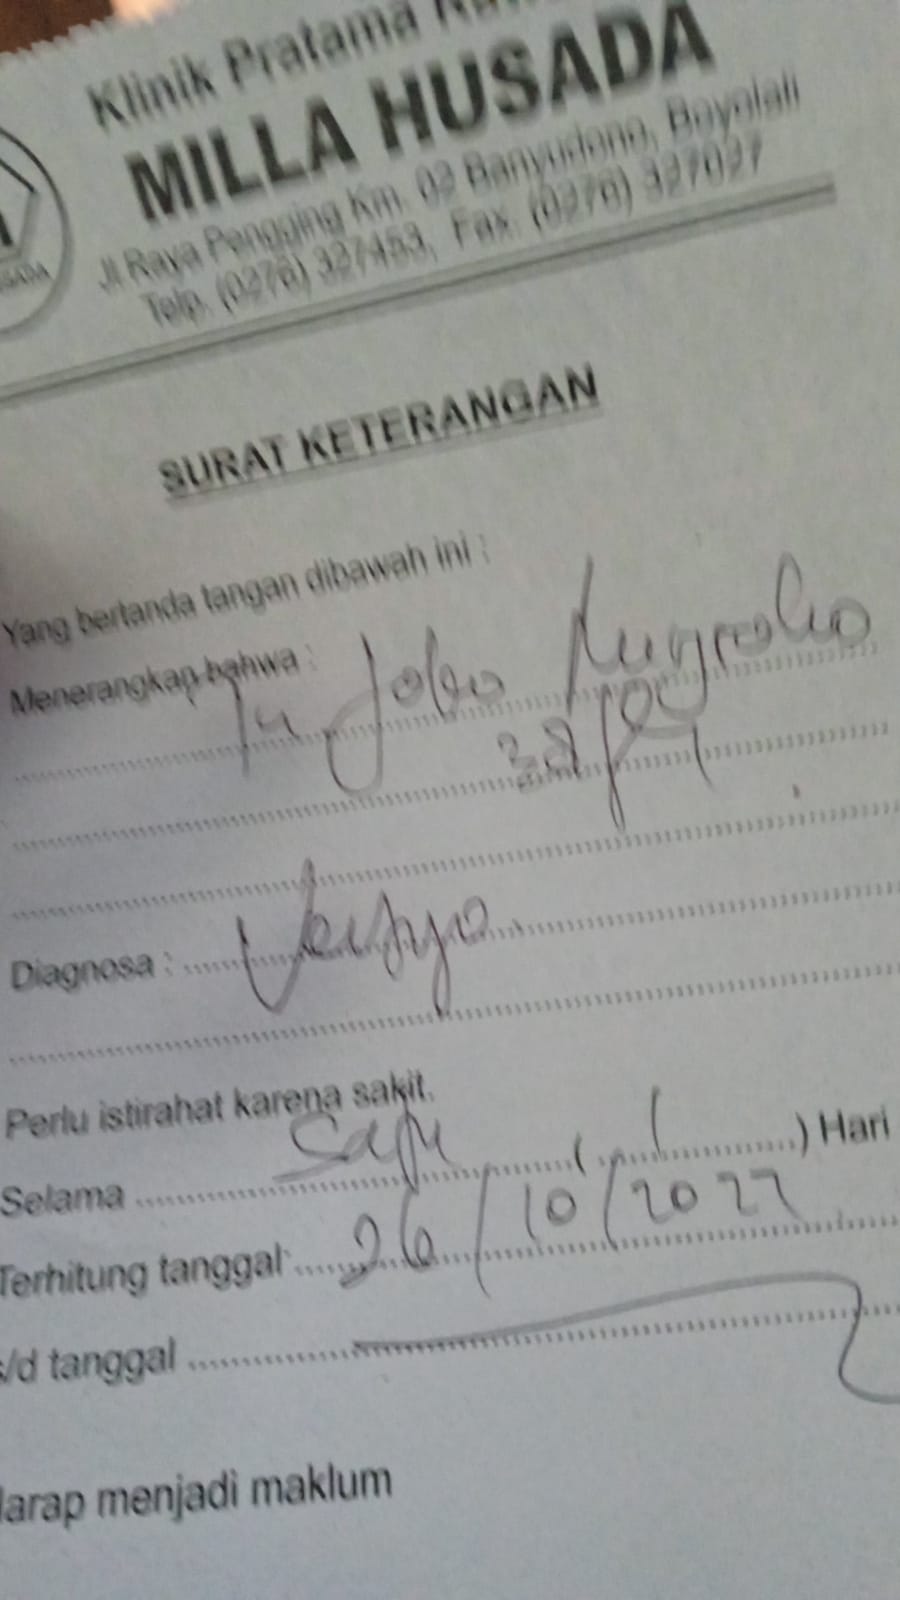 Klinik Pratama
MILLA HUSADA
Jl Raya Pengging Km. 02 Banyudono, Boyolali
Telp. (0276) 327453, Fax. (0276) 327027
SURAT KETERANGAN
Yang bertanda tangan dibawah ini :
Menerangkan bahwa :
Tn Joko Nugroho
Diagnosa : Vertigo
Perlu istirahat karena sakit.
Selama Satu ( 1 ) Hari
Terhitung tanggal 26/10/2022
s/d tanggal
Harap menjadi maklum